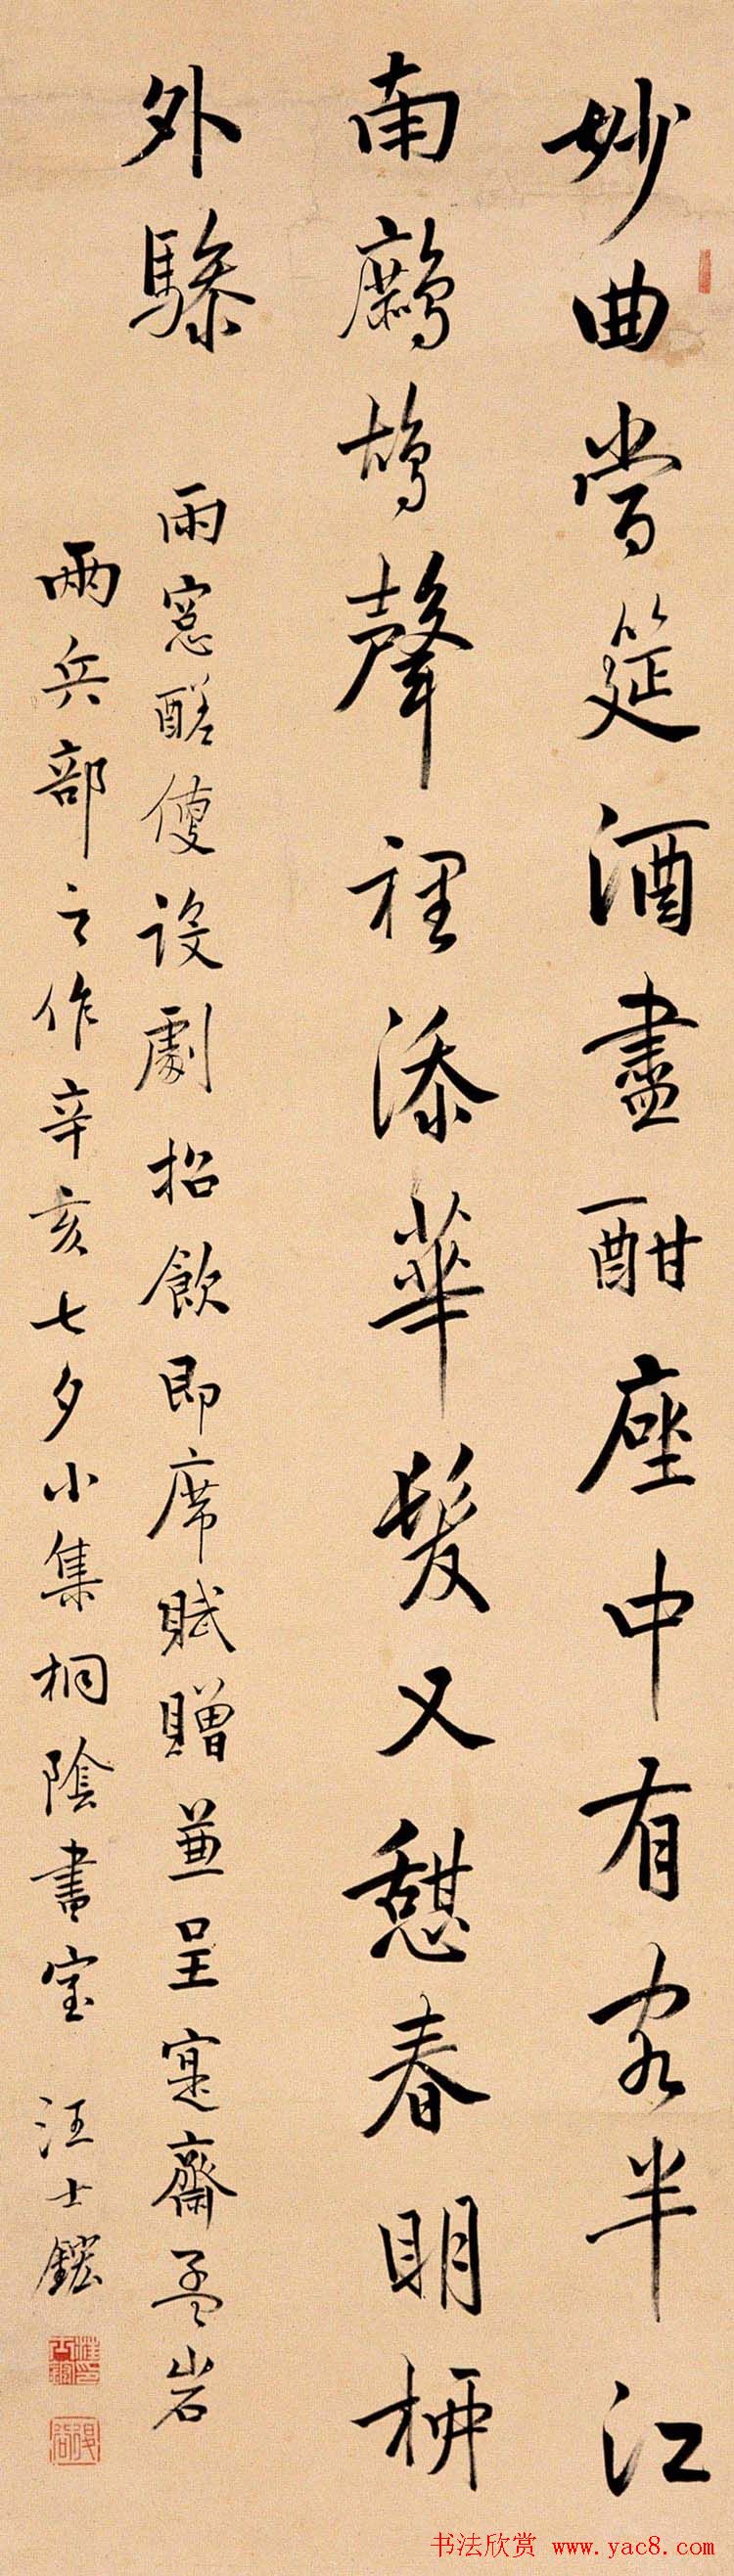 妙曲當筵酒盡酣座中有客半江
南鷓鴣聲裡添華髮又憇春明柳
外驂
雨窓醝使設劇招飲即席賦贈兼呈寔齋孟岩
兩兵部之作辛亥七夕小集桐陰書室 汪士鋐
书法欣赏 www.yac8.com